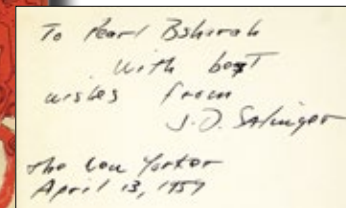 To Pearl Bsharah
with best
wishes from
J.D. Salinger
The New Yorker
April 13, 1959